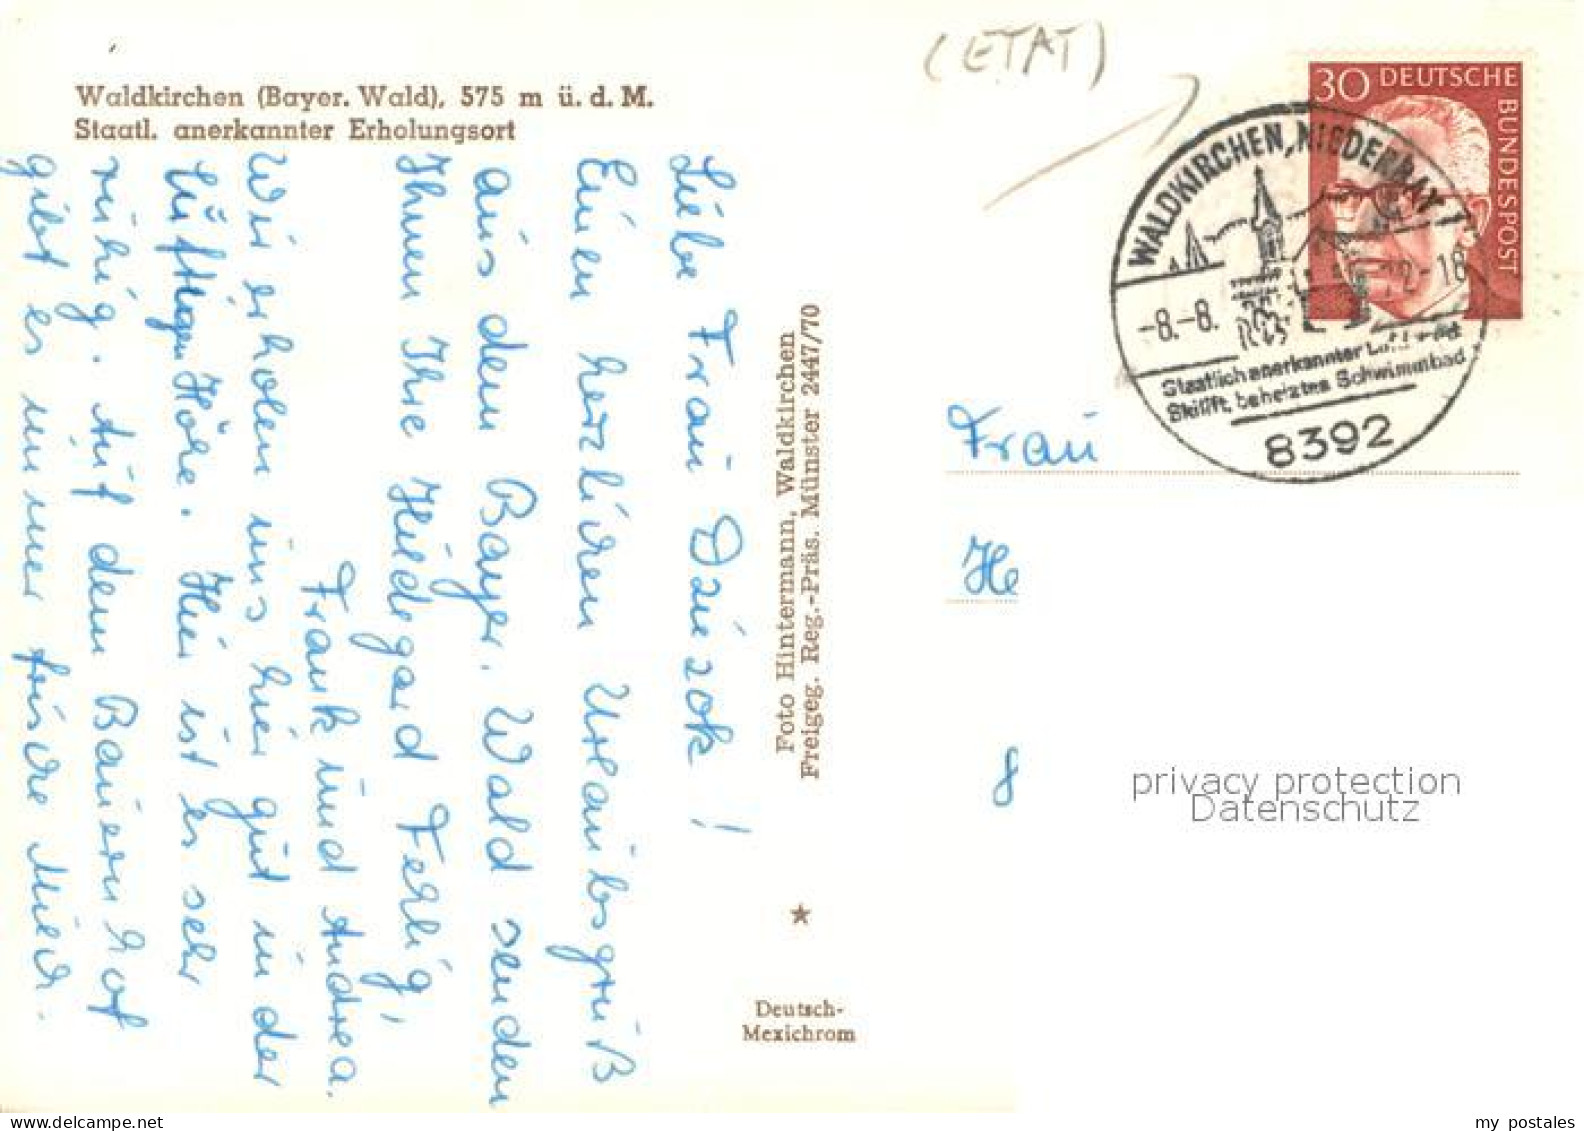 Waldkirchen (Bayer. Wald), 575 m ü. d. M.
Staatl. anerkannter Erholungsort
Liebe Frau Dziezok!
Einen herzlichen Urlaubsgruß
aus dem Bayer. Wald senden
Ihnen Ihre Hildegard Fehlig,
Frank und Andrea.
Wir erholen uns hier gut in der
luftigen Höhe. Hier ist es sehr
ruhig. Auf dem Bauernhof
gibt es immer frische Milch.
Foto Hintermann, Waldkirchen
Freigeg. Reg.-Präs. Münster 2447/70
Deutsch-
Mexichrom
(ETAT)
30 DEUTSCHE
BUNDESPOST
WALDKIRCHEN, NIEDERBAY 1
-8.-8. 72-18
Staatlich anerkannter
Skilift, beheiztes Schwimmbad
8392
Frau
He
8
privacy protection
Datenschutz
my postales